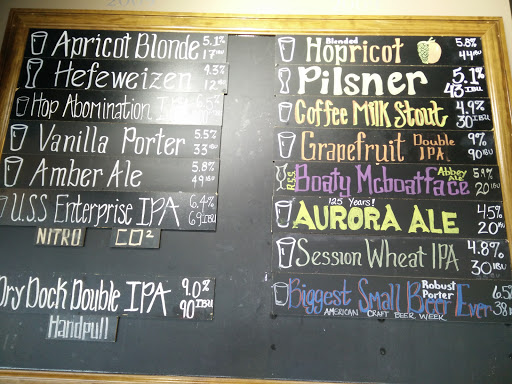 Apricot Blonde 5.1%
17 IBU
Hefeweizen 4.3%
12 IBU
Hop Abomination IPA 6.5%
Vanilla Porter 5.5%
33 IBU
Amber Ale 5.8%
49 IBU
U.S.S. Enterprise IPA 6.4%
69 IBU
NITRO CO2
Dry Dock Double IPA 9.0%
90 IBU
Handpull
Blended
Hopricot 5.8%
44 IBU
Pilsner 5.1%
43 IBU
Coffee Milk Stout 4.9%
30 IBU
Grapefruit Double IPA 9%
90 IBU
R.S.S. Boaty Mcboatface Abbey Ale 5.9%
20 IBU
125 Years!
AURORA ALE 4.5%
20 IBU
Session Wheat IPA 4.8%
30 IBU
Robust Porter
Biggest Small Beer Ever 6.5%
38 IBU
AMERICAN CRAFT BEER WEEK